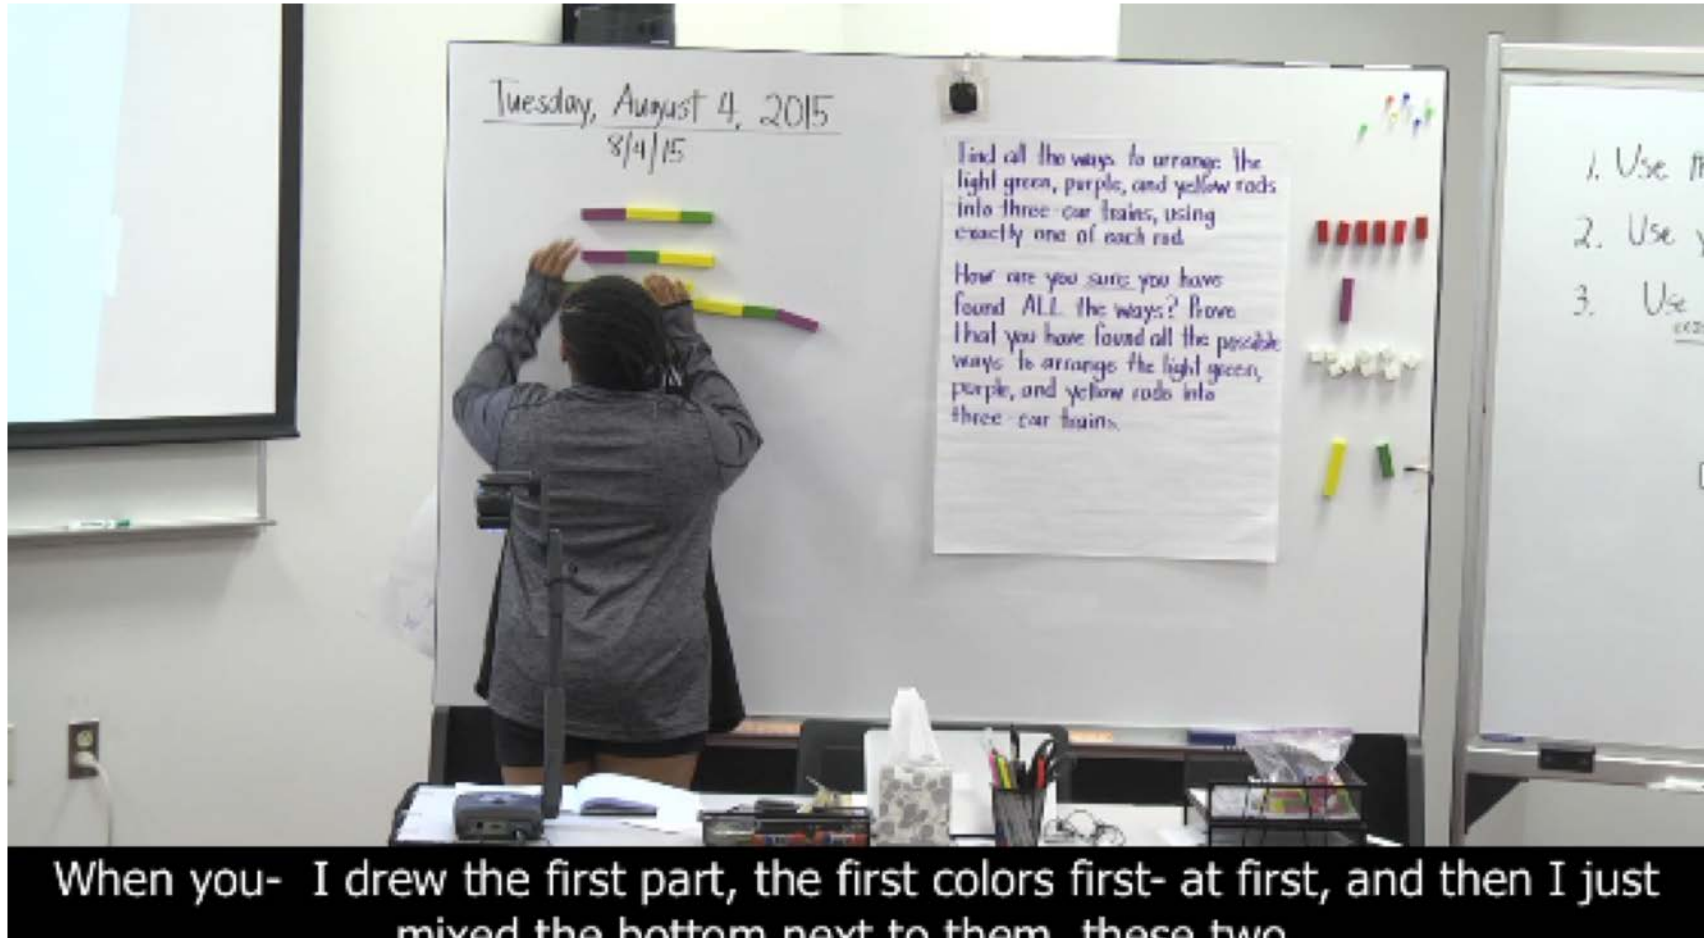 Tuesday, August 4, 2015
8/4/15
Find all the ways to arrange the
light green, purple, and yellow rods
into three-car trains, using
exactly one of each rod.
How are you sure you have
found ALL the ways? Prove
that you have found all the possible
ways to arrange the light green,
purple, and yellow rods into
three-car trains.
1. Use
2. Use
3. Use
When you- I drew the first part, the first colors first- at first, and then I just
mixed the bottom next to them, these two